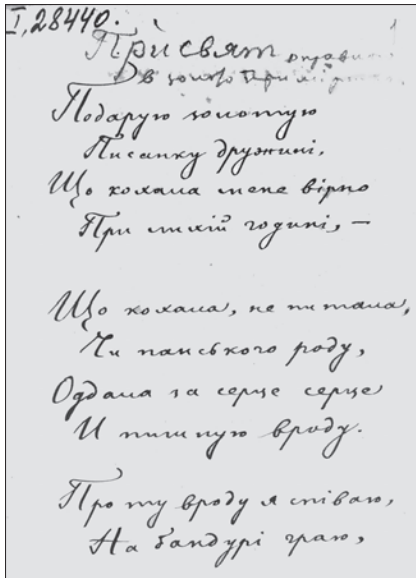 I, 28440.
1
Присвят
в золото
Подарую золотую
Писанку дружині,
Що кохала мене вірно
При лихій годині, —
Що кохала, не питала,
Чи панського роду,
Оддала за серце серце
И пишную вроду.
Про ту вроду я співаю,
На бандурі граю,